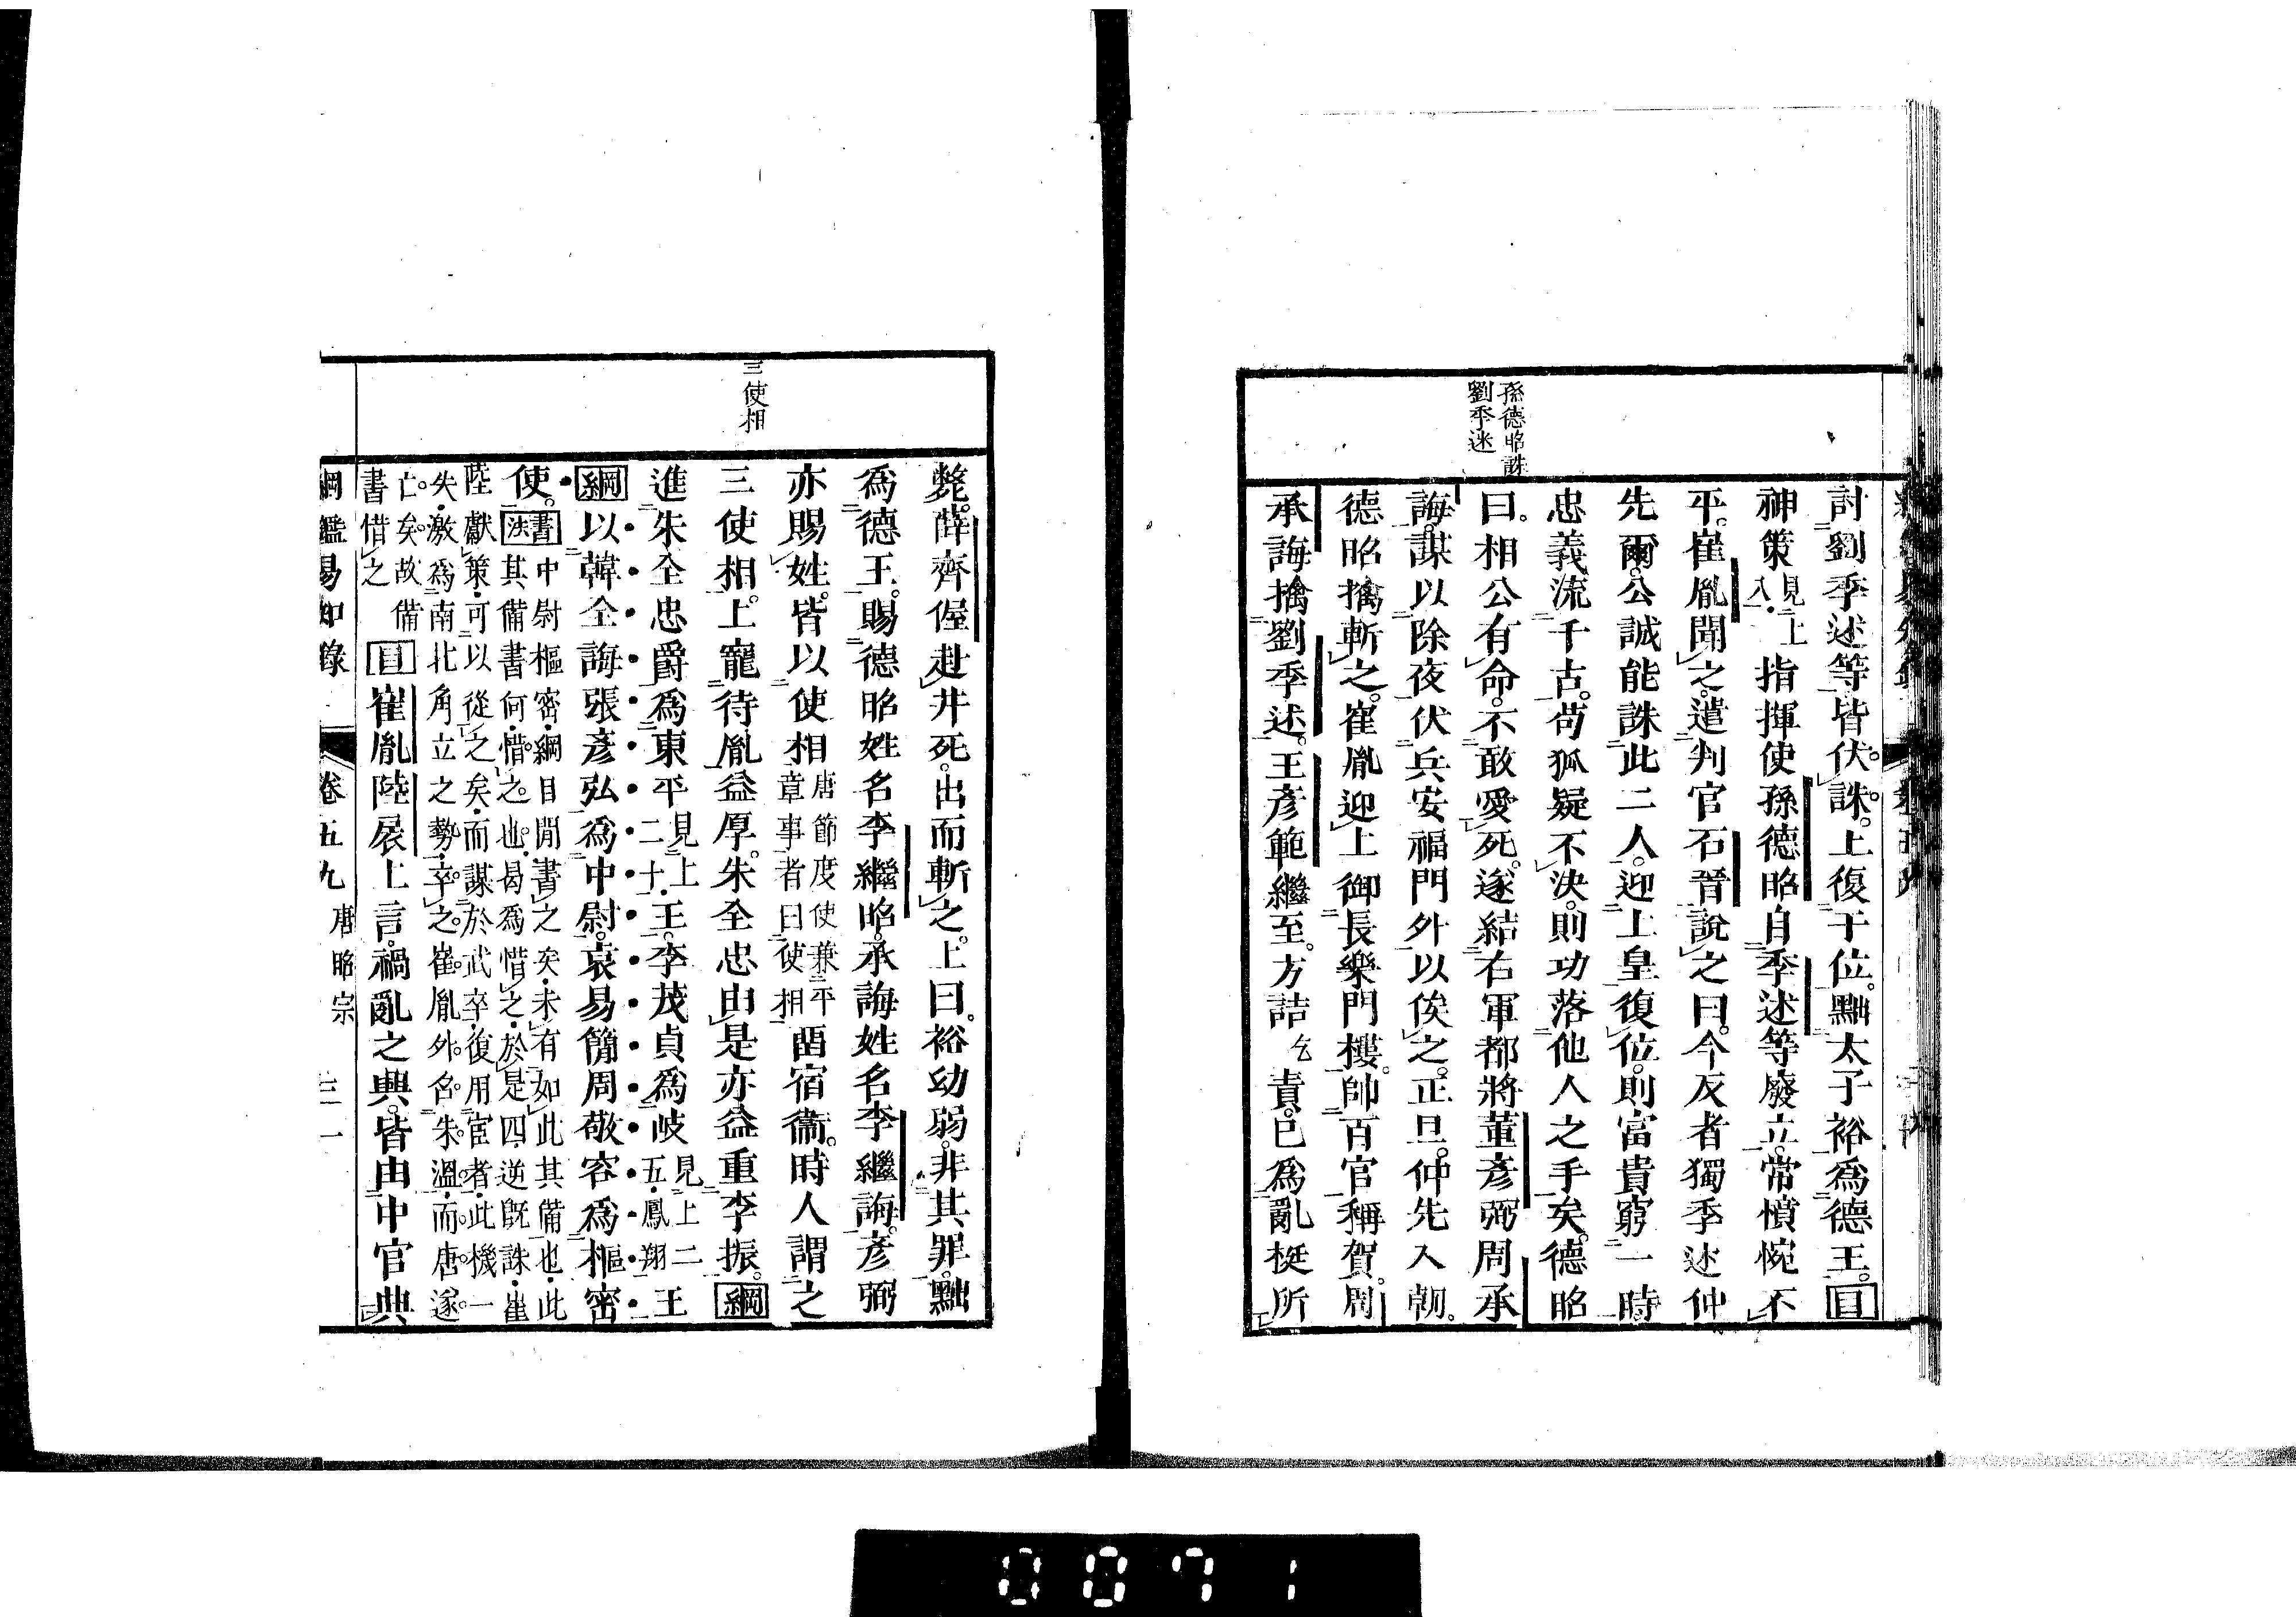 孫德昭誅
劉季述
討劉季述等皆伏誅。上復于位。黜太子裕爲德王。目
神策見上入指揮使孫德昭自季述等廢立。常憤惋不
平。崔胤聞之。遣判官石晉說之曰。今反者獨季述仲
先爾。公誠能誅此二人。迎上皇復位。則富貴窮一時。
忠義流千古。苟狐疑不決。則功落他人之手矣。德昭
曰。相公有命。不敢愛死。遂結右軍都將董彦弼周承
誨。謀以除夜伏兵安福門外以俟之。正旦。仲先入朝。
德昭擒斬之。崔胤迎上御長樂門樓。帥百官稱賀。周
承誨擒劉季述。王彦範繼至。方詰乞責。已爲亂梃所
三使相
斃。薛齊偓赴井死。出而斬之。上曰。裕幼弱。非其罪。黜
爲德王。賜德昭姓名李繼昭。承誨姓名李繼誨。彦弼
亦賜姓。皆以使相唐節度使兼平章事者曰使相畱宿衞。時人謂之
三使相。上寵待胤益厚。朱全忠由是亦益重李振。綱
進朱全忠爵爲東平見上二十王。李茂貞爲岐見上二五鳳翔王
綱以韓全誨張彥弘爲中尉。袁易簡周敬容爲樞密
使。書法中尉樞密綱目閒書之矣未有如此其備也此
其備書何惜之也曷爲惜之於是四逆旣誅崔
陸獻策可以從之矣而謀於武卒復用宦者此機一
失激爲南北角立之勢卒之崔胤外召朱溫而唐遂
亡矣故備
書惜之目崔胤陸扆上言。禍亂之興。皆由中官典
綱鑑易知錄 卷五九 唐昭宗 三一
0071